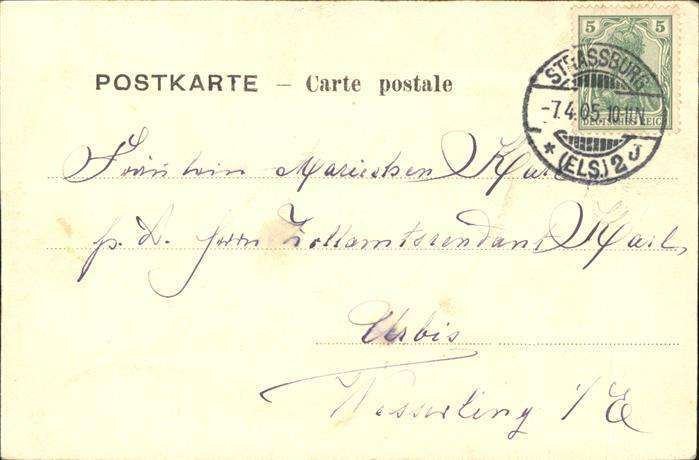 5 5
DEUTSCHES REICH
STRASSBURG
-7.4.05.10-11N.
* (ELS.) 2 J
POSTKARTE – Carte postale
Fräulein Mariechen Karl
p. A. Herrn Zollamtsrendant Karl,
Urbis
Wesserling i/E